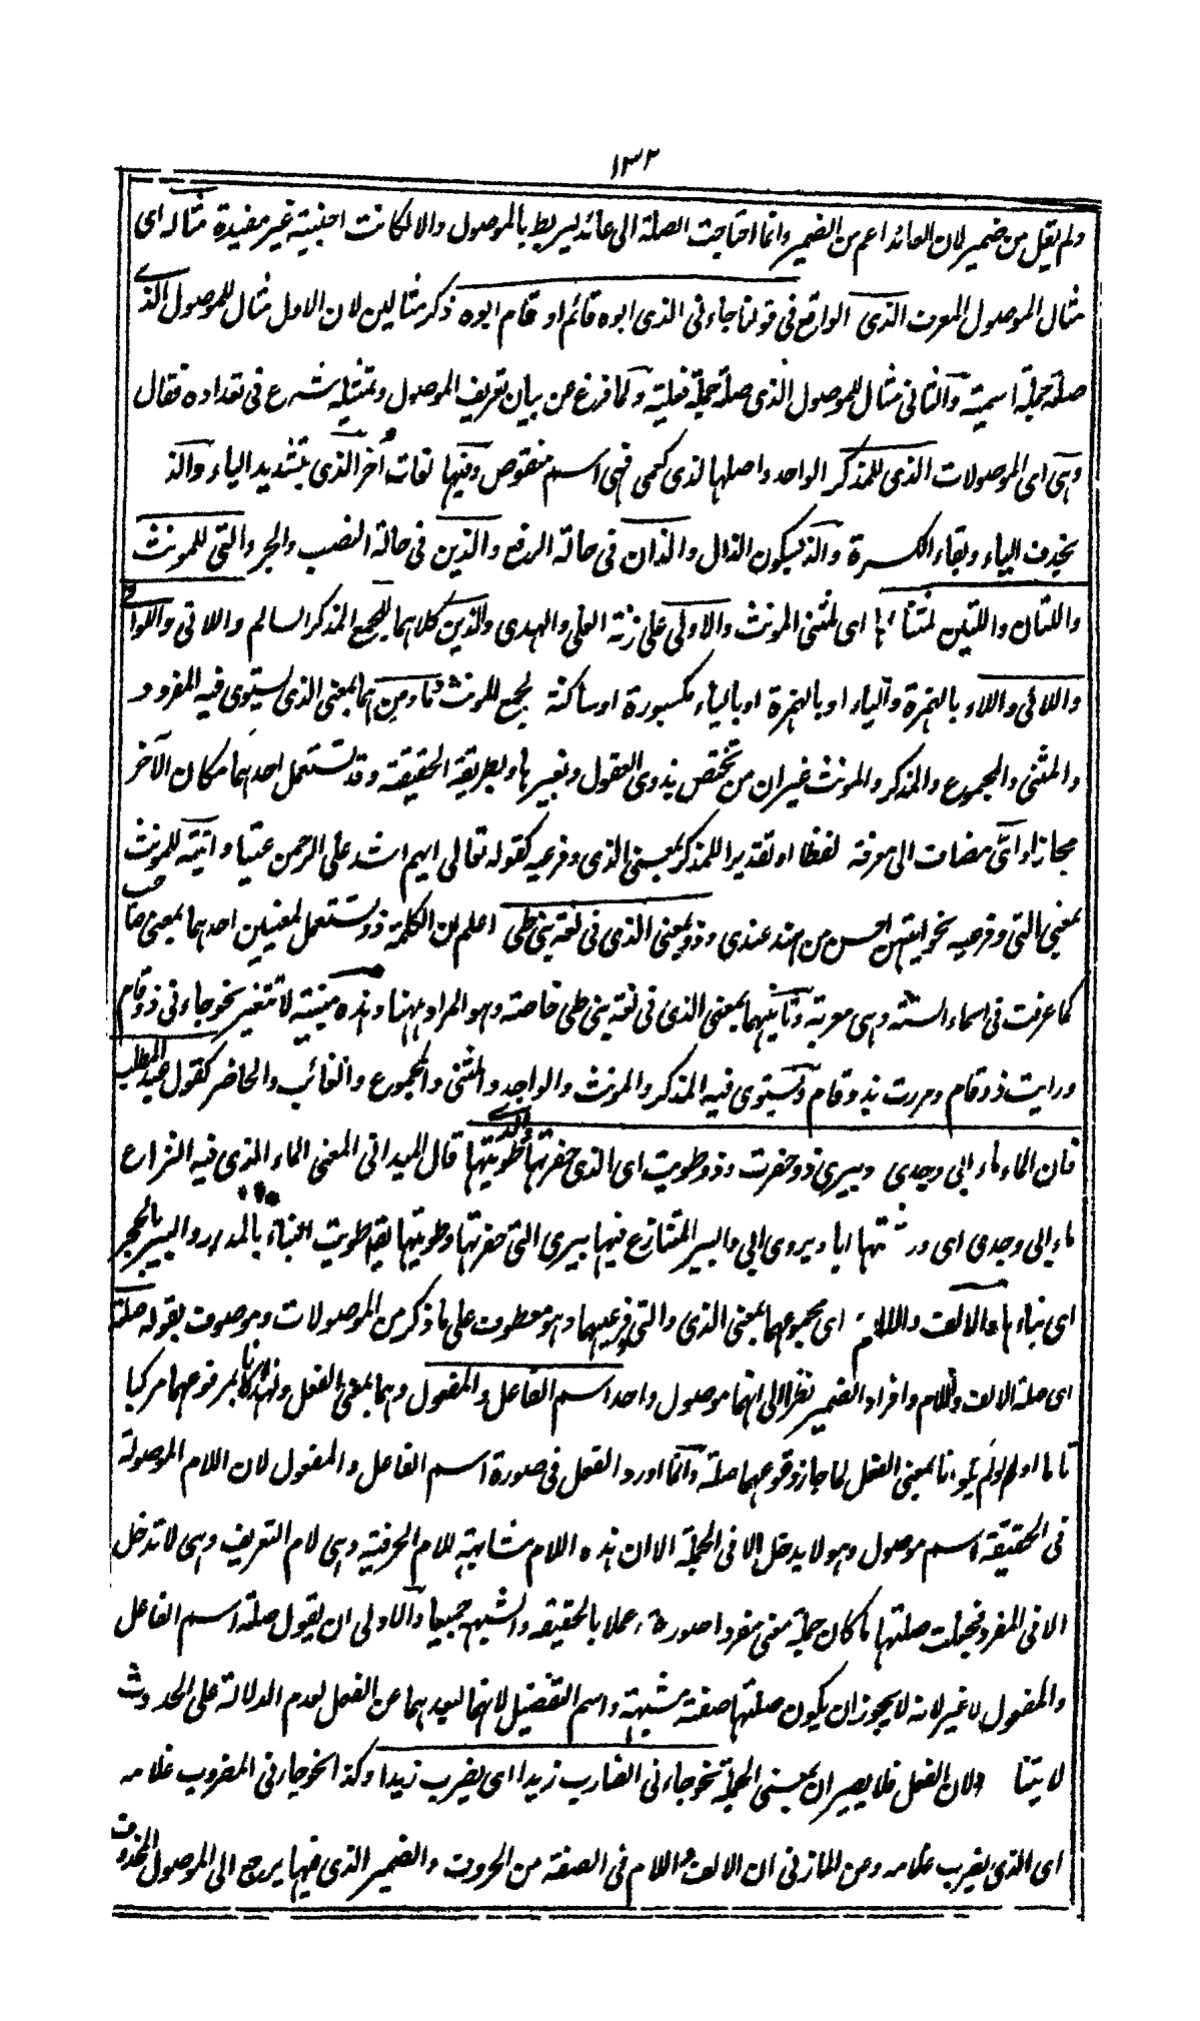 ١٣٢
ولم يقل من ضمير لان العائد اعم من الضمير وانما احتاجت الصلة الى عائد ليربط بالموصول والا لكانت اجنبية غير مفيدة مثاله اى
مثال الموصول المعرف الذى الواقع فى قولنا جاءنى الذى ابوه قائم او قام ابوه ذكر مثالين لان الاول مثال للموصول الذى
صلته جملة اسمية والثانى مثال للموصول الذى صلته جملة فعلية ولما فرغ من بيان تعريف الموصول وتمثيله شرع فى تعداده فقال
وهى اى الموصولات الذى للمذكر الواحد واصلها لذى كعمى فهى اسم منقوص وفيها لغات اُخر الذى بتشديد الياء والذ
بحذف الياء وبقاء الكسرة والذ بسكون الذال والذان فى حالة الرفع والذين فى حالة النصب والجر والتى للمونث
واللتان واللتين لمثناها اى لمثنى المونث والاولى على زنة العلى والهدى والذين كلاهما لجمع المذكر السالم واللاتى واللواتى
واللائى واللاء بالهمزة والياء او بالهمزة او بالياء مكسورة او ساكنة لجمع المونث وما ومن هما بمعنى الذى يستوى فيه المفرد و
والمثنى والمجموع والمذكر والمونث غير ان من تختص بذوى العقول وما بغيرها وبطريقة الحقيقة وقد تستعمل احدهما مكان الآخر
مجازا واىّ مضاف الى معرفة لفظا او تقديرا للمذكر بمعنى الذى وفرعيه كقوله تعالى ايهم اشد على الرحمن عتيا وايّة للمونث
بمعنى التى وفرعيه نحو ايتهن احسن من هند عندى وذو بمعنى الذى فى لغة بنى طى اعلم ان الكلمة ذو تستعمل لمعنيين احدهما بمعنى صاحب
كما عرفت فى اسماء الستة وهى معربة وثانيهما بمعنى الذى فى لغة بنى طى خاصة وهو المراد ههنا وهذه مبنية لا تتغير نحو جاءنى ذو قام
ورايت ذو قام ومررت بذو قام ويستوى فيه المذكر والمونث والواحد والمثنى والمجموع والغائب والحاضر كقول عبد المطلب
فان الماء ماء ابى وجدى وبيرى ذو حفرت وذو طويت اى الذى حفرتها والذى طويتها قال الميدانى المعنى الماء الذى فيه النزاع
ماء ابى وجدى اى ورثتها ابا ويروى ابى والبير المتنازع فيها بيرى التى حفرتها وطويتها يقہ طويت البناء بالمدر والبير بالحجر
اى بناءها والالف واللام اى مجموعهما بمعنى الذى والتى وفرعيهما وهو معطوف على ما ذكر من الموصولات وموصوف بقوله صلته
اى صلة الالف واللام وافراد الضمير نظرا الى انهما موصول واحد اسم الفاعل والمفعول وهما بمعنى الفعل ولهذا كانا بمرفوعهما مركبا
تاما اولو لم يكونا بمعنى الفعل لما جاز وقوعهما صلة وانما اورد الفعل فى صورة اسم الفاعل والمفعول لان اللام الموصولة
فى الحقيقة اسم موصول وهو لا يدخل الا فى الجملة الا ان هذه اللام مشابهة للام الحرفية وهى لام التعريف وهى لا تدخل
الا فى المفرد فجعلت صلتها ما كان جملة معنى مفردا صورة عملا بالحقيقة والشبه جميعا والاولى ان يقول صلته اسم الفاعل
والمفعول لا غير لانه لا يجوز ان يكون صلتها صفة مشبهة واسم التفضيل لانهما لبعدهما عن الفعل لعدم الدلالة على الحدوث
لا يتنا ولان الفعل فلا يصيران بمعنى الجملة نحو جاءنى الضارب زيدا اى يضرب زيدا وكذا نحو جاءنى المضروب غلامه
اى الذى يضرب غلامه وعن المازنى ان الالف واللام فى الصفة من الحروف والضمير الذى فيها يرجع الى الموصول المحذوف